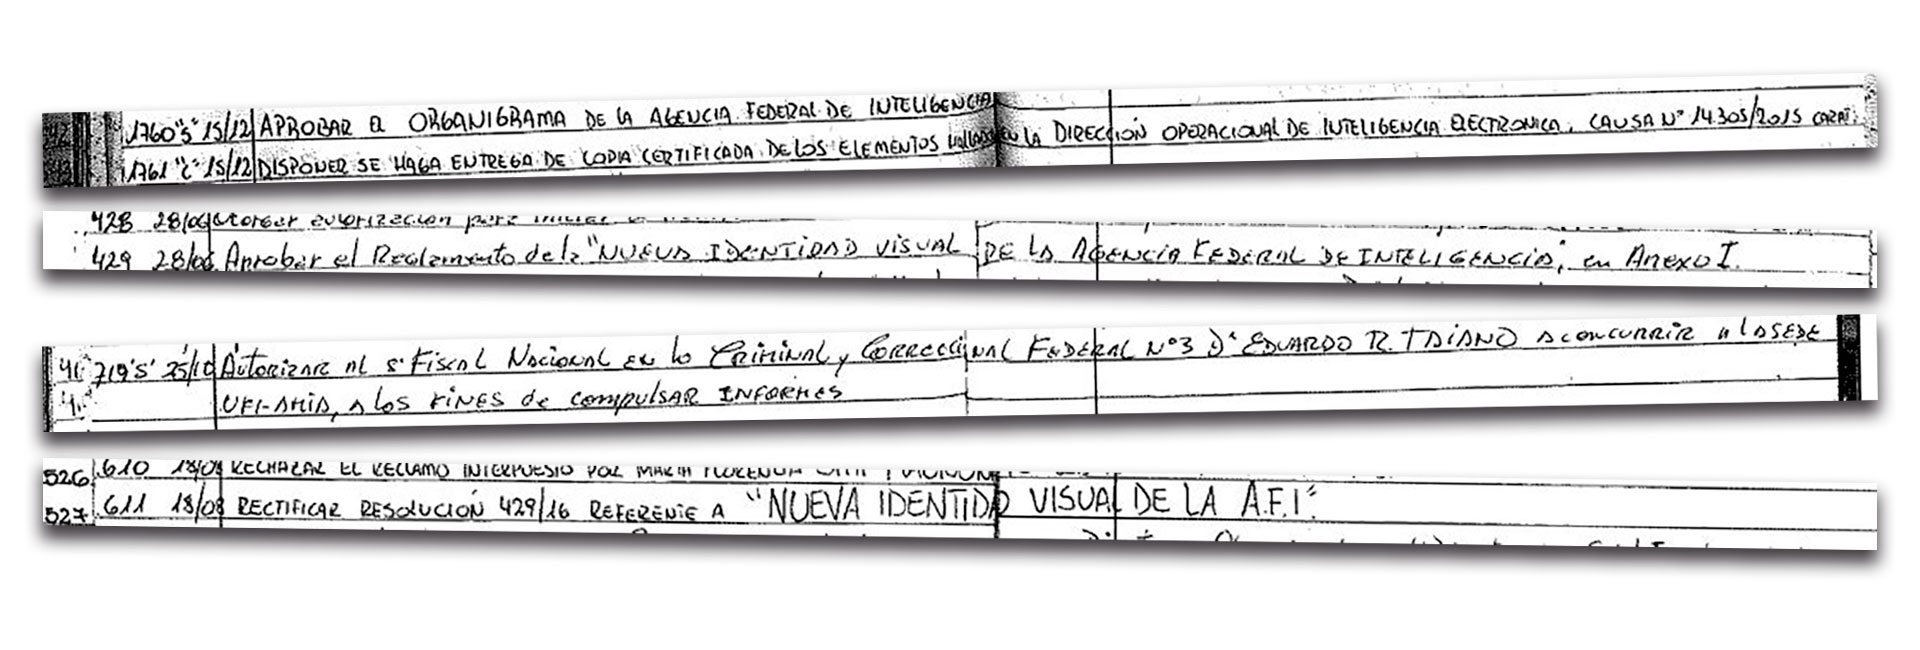 1760"S" 15/12 APROBAR EL ORGANIGRAMA DE LA AGENCIA FEDERAL DE INTELIGENCIA
1761 "C" 15/12 DISPONER SE HAGA ENTREGA DE COPIA CERTIFICADA DE LOS ELEMENTOS HALLADOS EN LA DIRECCIÓN OPERACIONAL DE INTELIGENCIA ELECTRONICA. CAUSA N° 14.305/2015 CARAT.
428 28/06 Otorgar autorización para iniciar
429 28/06 Aprobar el Reglamento de la "NUEVA IDENTIDAD VISUAL DE LA AGENCIA FEDERAL DE INTELIGENCIA", en ANEXO I.
719"S" 25/10 Autorizar al Sr Fiscal Nacional en lo Criminal y Correccional Federal N°3 Dr EDUARDO R. TAIANO a concurrir a la SEDE
UFI-AMIA, a los FINES de compulsar INFORMES
526 610 18/08 RECHAZAR EL RECLAMO INTERPUESTO POR MARIA FLORENCIA
527 611 18/08 RECTIFICAR RESOLUCIÓN 429/16 REFERENTE A "NUEVA IDENTIDAD VISUAL DE LA A.F.I".